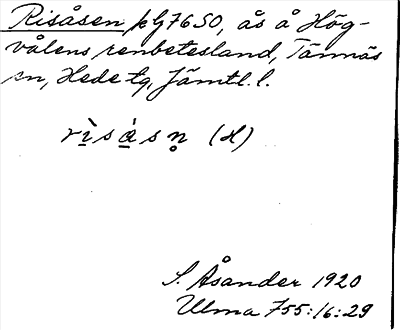 Risåsen kG7650, ås å Hög-
vålens renbetesland, Tännäs
sn, Hede tg, Jämtl. l.
rìsásn̥ (H)
S. Åsander 1920
Ulma 755:16:29